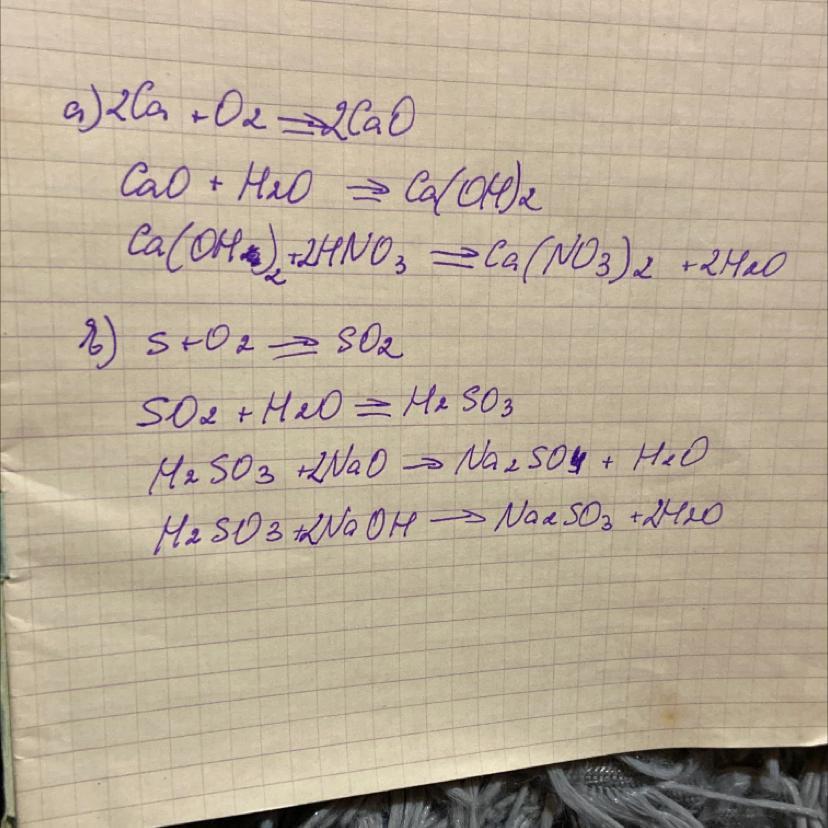 а) 2Ca + O2 ⇒ 2CaO
CaO + H2O ⇒ Ca(OH)2
Ca(OH)2 + 2HNO3 ⇒ Ca(NO3)2 + 2H2O
в) S + O2 ⇒ SO2
SO2 + H2O = H2SO3
H2SO3 + 2NaO → Na2SO4 + H2O
H2SO3 + 2NaOH → Na2SO3 + 2H2O